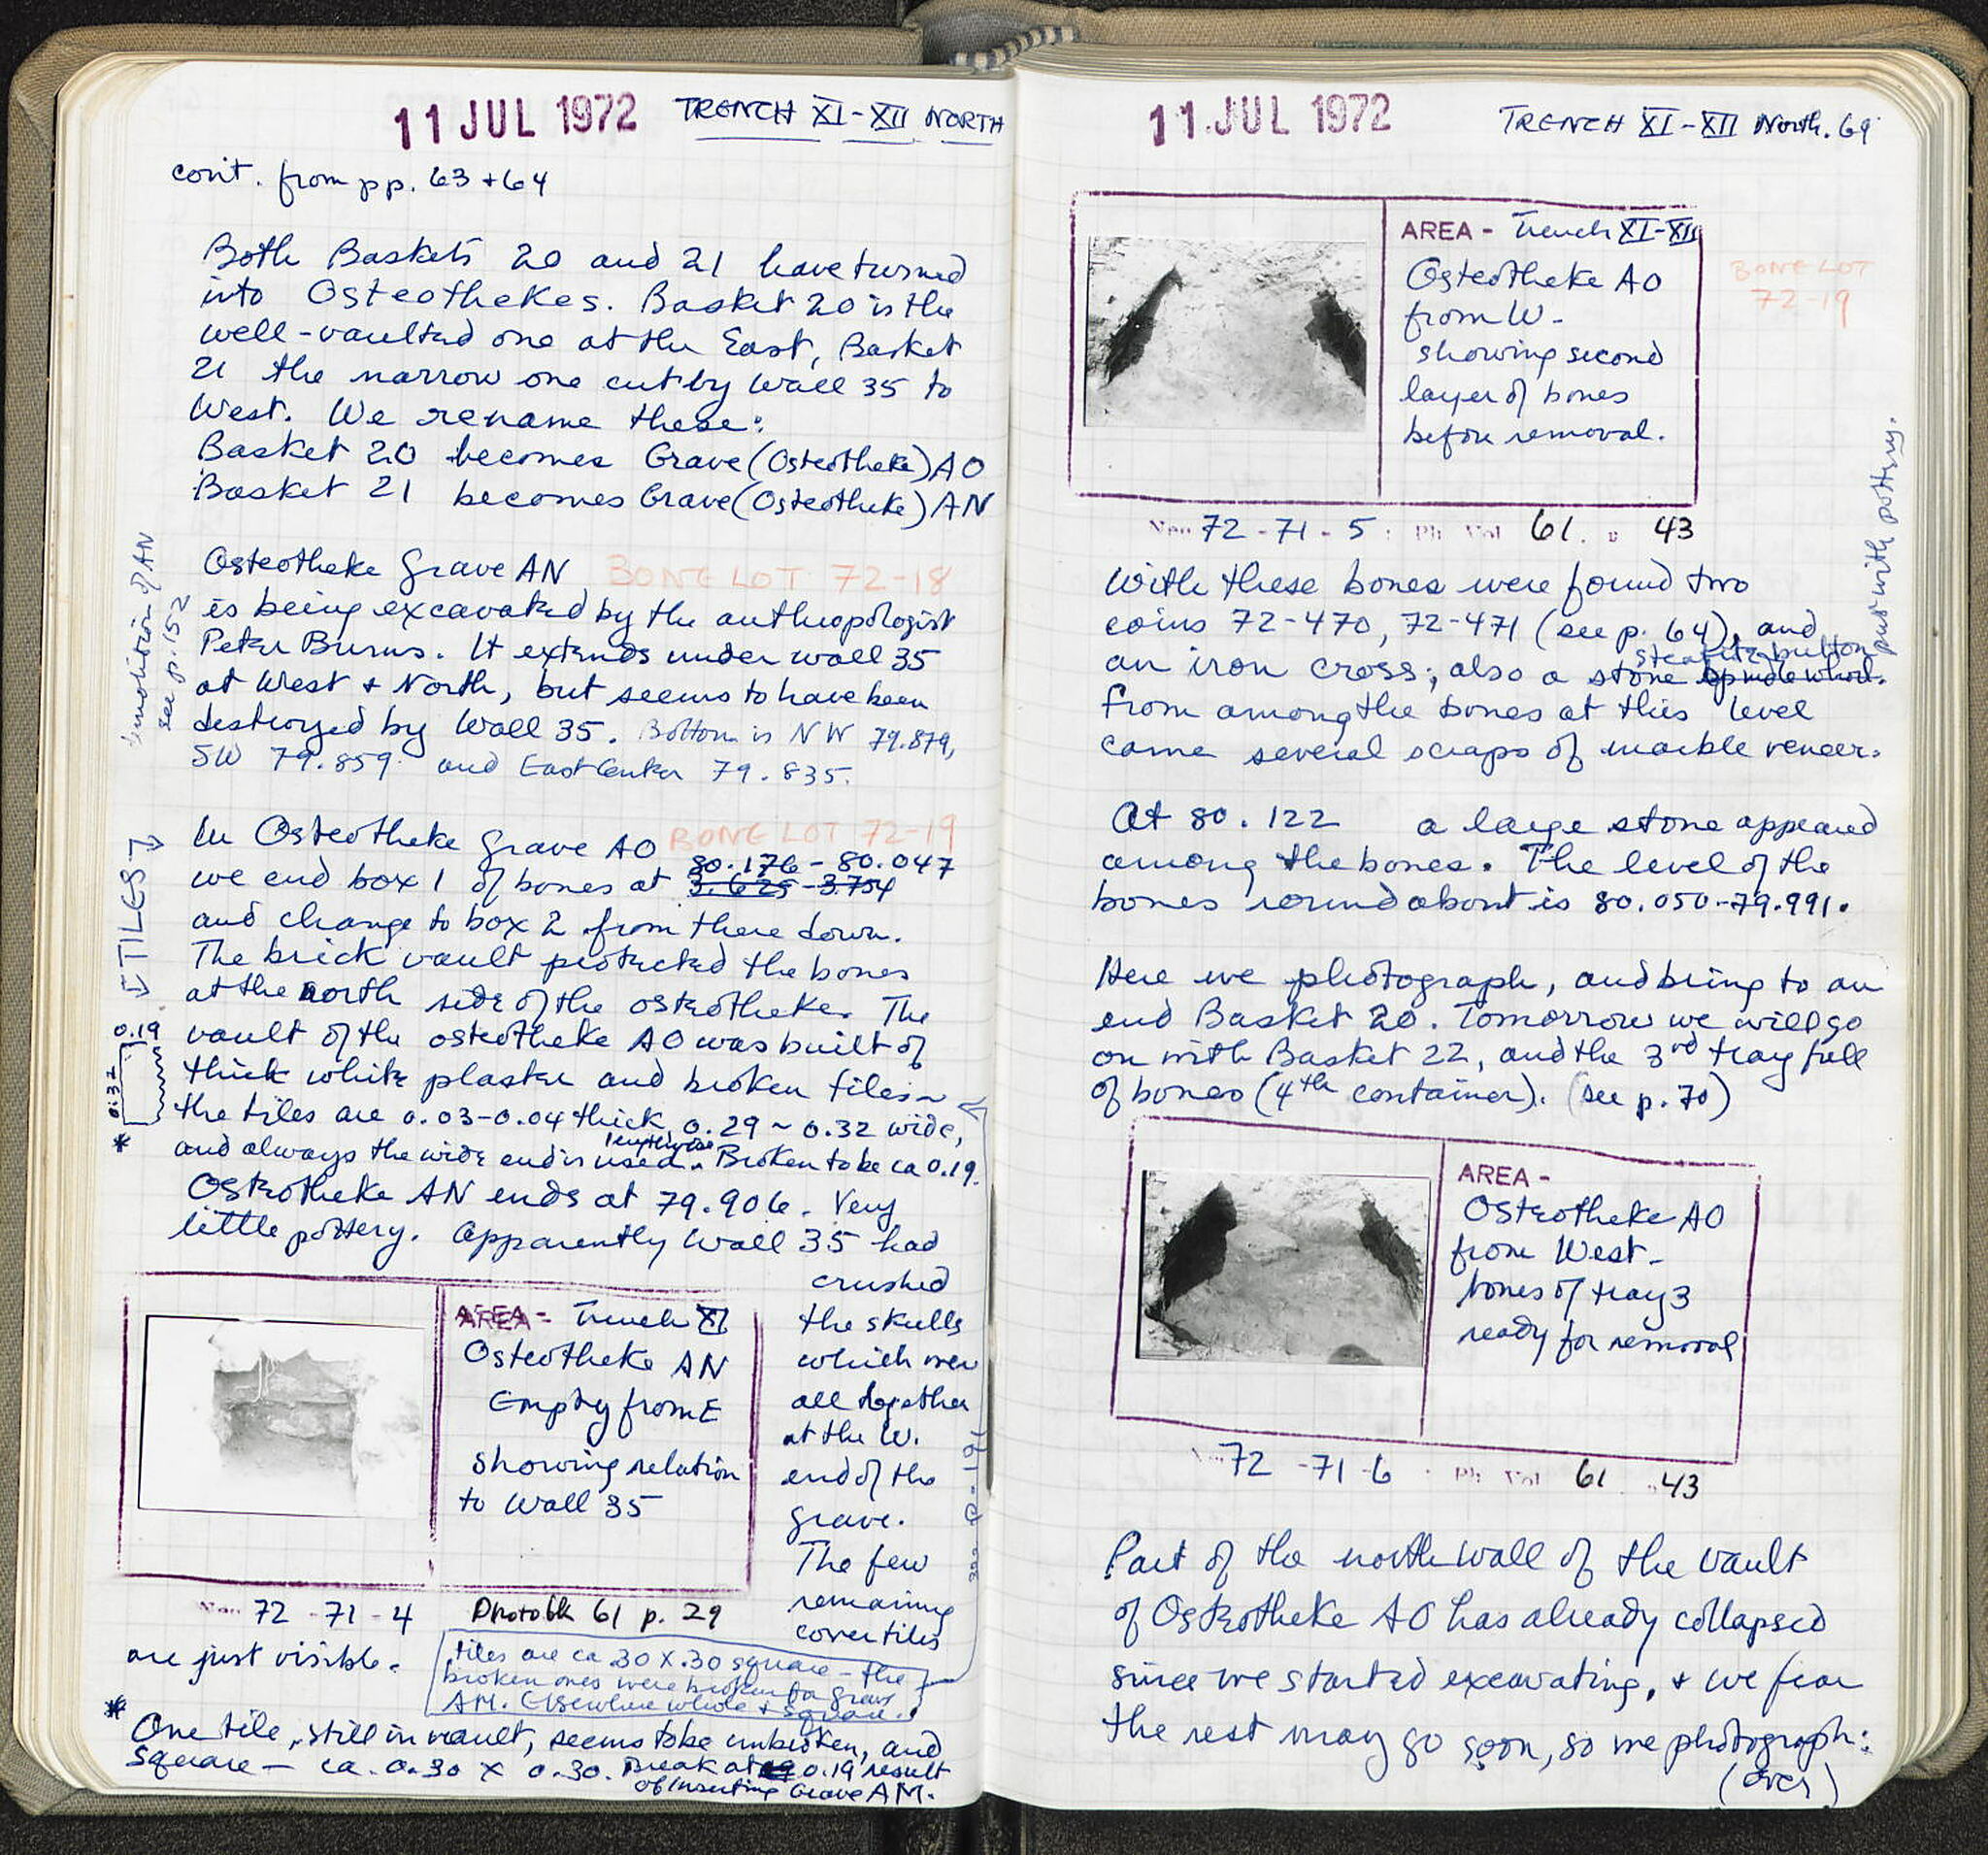 11 JUL 1972 TRENCH XI-XII NORTH
cont. from pp. 63 + 64
Both Baskets 20 and 21 have turned
into Osteothekes. Basket 20 is the
well-vaulted one at the East, Basket
21 the narrow one cut by Wall 35 to
West. We rename these:
Basket 20 becomes Grave (Osteotheke) AO
Basket 21 becomes Grave (Osteotheke) AN
Osteotheke Grave AN BONE LOT 72-18
is being excavated by the anthropologist
Peter Burns. It extends under wall 35
at West + North, but seems to have been
destroyed by Wall 35. Bottom is NW 79.879,
SW 79.859 and East Center 79.835.
demolition of AN
see p. 152
In Osteotheke Grave AO BONE LOT 72-19
80.176 - 80.047
we end box 1 of bones at 3.625 - 3.754
and change to box 2 from there down.
The brick vault protected the bones
at the north side of the osteotheke. The
vault of the osteotheke AO was built of
thick white plaster and broken tiles
the tiles are 0.03-0.04 thick, 0.29 ~ 0.32 wide,
lengthwise
and always the wide end is used. Broken to be ca 0.19.
TILES
0.19
0.32
*
Osteotheke AN ends at 79.906. Very
little pottery. Apparently Wall 35 had
crushed
the skulls
which were
all together
at the W.
end of the
grave.
The few
remaining
cover tiles
are just visible.
AREA - Trench XI
Osteotheke AN
Empty from E
showing relation
to Wall 35
Neg. 72 - 71 - 4 Photo bk 61 p. 29
tiles are ca .30 X .30 square - the
broken ones were broken for grave
AM. Elsewhere whole + square.
see p. 191
* One tile, still in vault, seems to be unbroken, and
square - ca. 0.30 x 0.30. Break at 0.19 result
of inserting Grave AM.
11 JUL 1972 TRENCH XI-XII North. 69
AREA - Trench XI-XII
Osteotheke AO
from W -
showing second
layer of bones
before removal.
BONE LOT
72-19
Neg. 72 - 71 - 5 Ph Vol 61. p 43
With these bones were found two
coins 72-470, 72-471 (see p. 64), and
steatite button
an iron cross; also a stone spindle whorl.
put with pottery.
From among the bones at this level
came several scraps of marble veneer.
At 80.122 a large stone appeared
among the bones. The level of the
bones roundabout is 80.050-79.991.
Here we photograph, and bring to an
end Basket 20. Tomorrow we will go
on with Basket 22, and the 3rd tray full
of bones (4th container). (see p. 70)
AREA -
Osteotheke AO
from West -
bones of tray 3
ready for removal
72 - 71 - 6 Ph Vol 61 43
Part of the north wall of the vault
of Osteotheke AO has already collapsed
since we started excavating, + we fear
the rest may go soon, so we photograph:
(over)